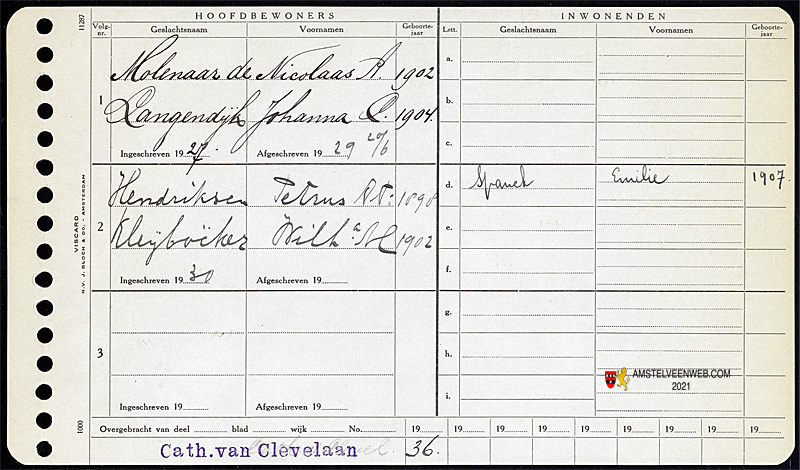 HOOFDBEWONERS
Volg-nr. Geslachtsnaam Voornamen Geboorte-jaar
1
Molenaar de Nicolaas A. 1902
Langendijk Johanna C. 1904.
Ingeschreven 1927. Afgeschreven 19 29 20/6
2
Hendriksen Petrus 1898
Kleyböcker Wilha. M 1902
Ingeschreven 1930 Afgeschreven 19
3
Ingeschreven 19 Afgeschreven 19
INWONENDEN
Lett. Geslachtsnaam Voornamen Geboorte-jaar
a.
b.
c.
d. Spanet Emilie 1907.
e.
f.
g.
h.
i.
AMSTELVEENWEB.COM
2021
Overgebracht van deel blad wijk No. 19 19 19 19 19 19 19 19 19
Cath.van Clevelaan 36.
11287
VISCARD
N.V. J. BLOCH & CO. - AMSTERDAM
1000